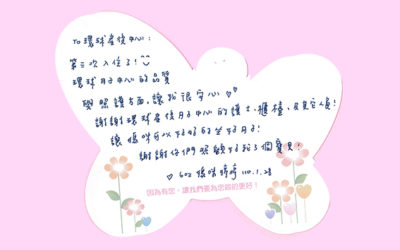 To 環球產後中心:
第三次入住了!
環球月子中心的品質
與照護方面,讓我很安心♡♡
謝謝環球產後月子中心的護士、櫃檯、及其它人員!
讓媽咪可以好好的坐好月子!
謝謝你們照顧好我3個寶貝!
♡ 602 媽咪 110.1.28
因為有您,讓我們要為您做的更好!